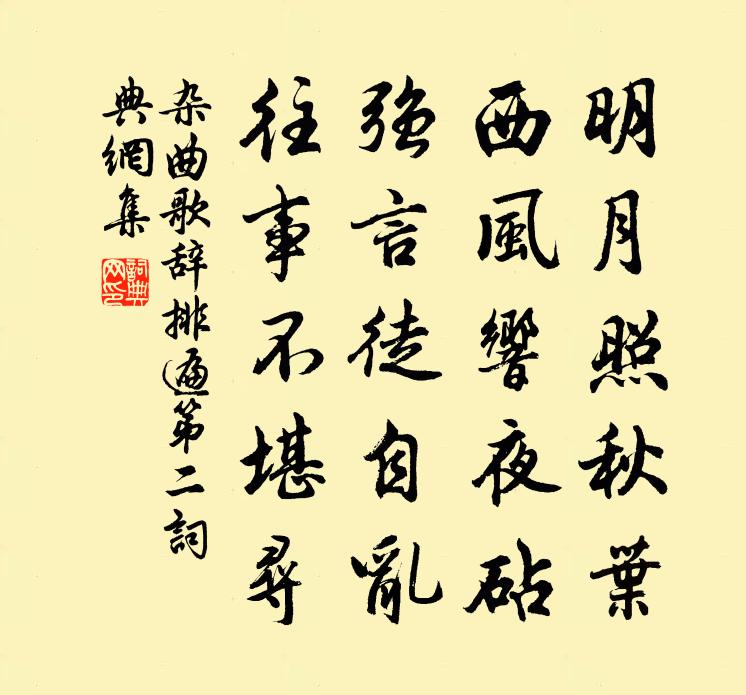 明月照秋葉
西風響夜砧
強言徒自亂
往事不堪尋
杂曲歌辞排遍第二詞
典網集
詞典網印